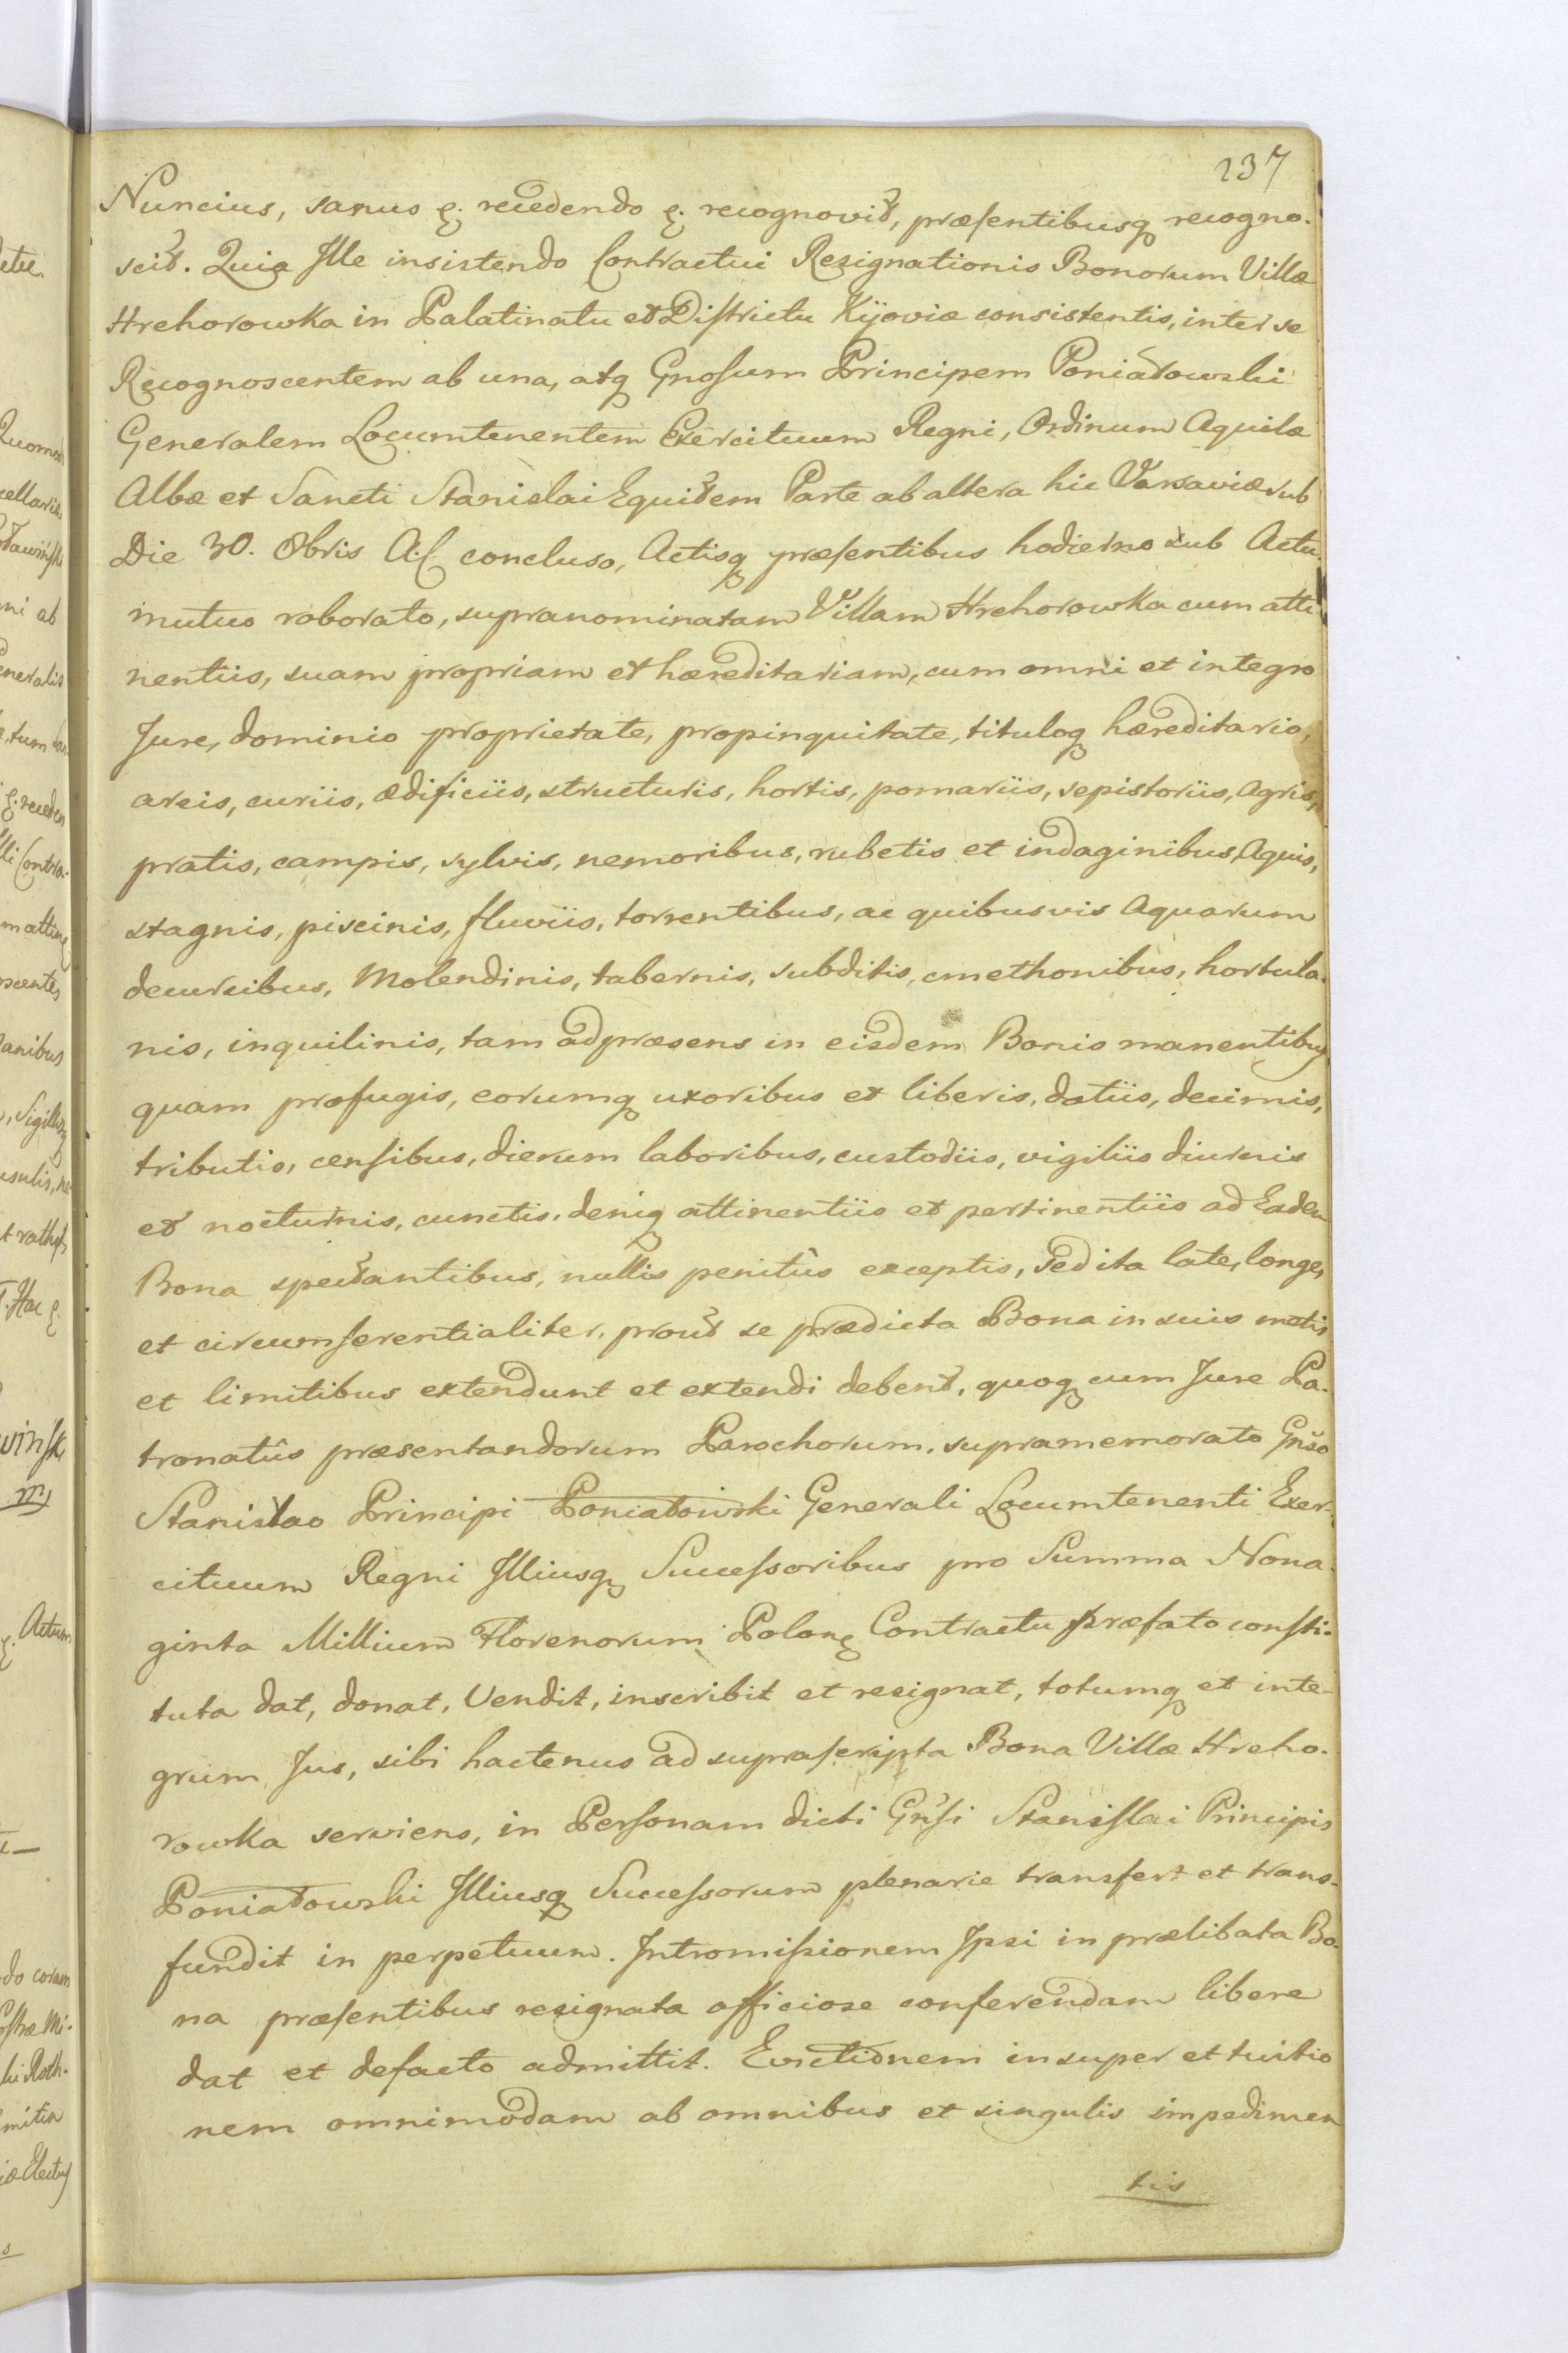 237
Nuncius, sanus ę. recedendo ę. recognovit, præsentibusq recogno-
scit. Quia Ille insistendo Contractui Resignationis Bonorum Villæ
Hrehorowka in Palatinatu et Districtu Kijoviæ consistentis, inter se
Recognoscentem ab una, atq Gnosum Principem Poniatowski
Generalem Locumtenentem Exercituum Regni, Ordinum Aquilæ
Albæ et Sancti Stanislai Equitem Parte ab altera hic Varsaviæ sub
Die 30. 8bris A.C. concluso, Actisq præsentibus hodierno sub Actu
mutuo roborato, supranominatam Villam Hrehorowka cum atti-
nentiis, suam propriam et hæreditariam, cum omni et integro
Jure, dominio proprietate, propinquitate, tituloq hæreditario,
areis, curiis, ædificiis, structuris, hortis, pomariis, sepistoriis, Agris,
pratis, campis, sylvis, nemoribus, rubetis et indaginibus, Aquis,
stagnis, piscinis, fluviis, torrentibus, ac quibusvis Aquarum
decursibus, Molendinis, tabernis, subditis, cmethonibus, hortula-
nis, inquilinis, tam ad præsens in eisdem Bonis manentibus
quam profugis, eorumq uxoribus et liberis, datiis, decimis,
tributis, censibus, dierum laboribus, custodiis, vigiliis diurnis
et nocturnis, cunctis, deniq attinentiis et pertinentiis ad Eadem
Bona spectantibus, nullis penitùs exceptis, sed ita late, longe,
et circumferentialiter, prout se prædicta Bona in suis metis
et limitibus extendunt et extendi debent, quoq cum Jure Pa-
tronatûs præsentandorum Parochorum, supramemorato Gnso
Stanislao Principi Poniatowski Generali Locumtenenti Exer-
cituum Regni Illiusq Successoribus pro Summa Nona-
ginta Millium Florenorum Polonę Contractu præfato consti-
tuta dat, donat, Vendit, inscribit et resignat, totumq et inte-
grum Jus, sibi hactenus ad suprascripta Bona Villæ Hreho-
rowka serviens, in Personam dicti Gnsi Stanislai Principis
Poniatowski Illiusq Successorum plenarie transfert et trans-
fundit in perpetuum. Intromissionem Ipsi in prælibata Bo-
na præsentibus resignata officiose conferendam libere
dat et defacto admittit. Evictionem insuper et tuitio
nem omnimodam ab omnibus et singulis impedimen
tis